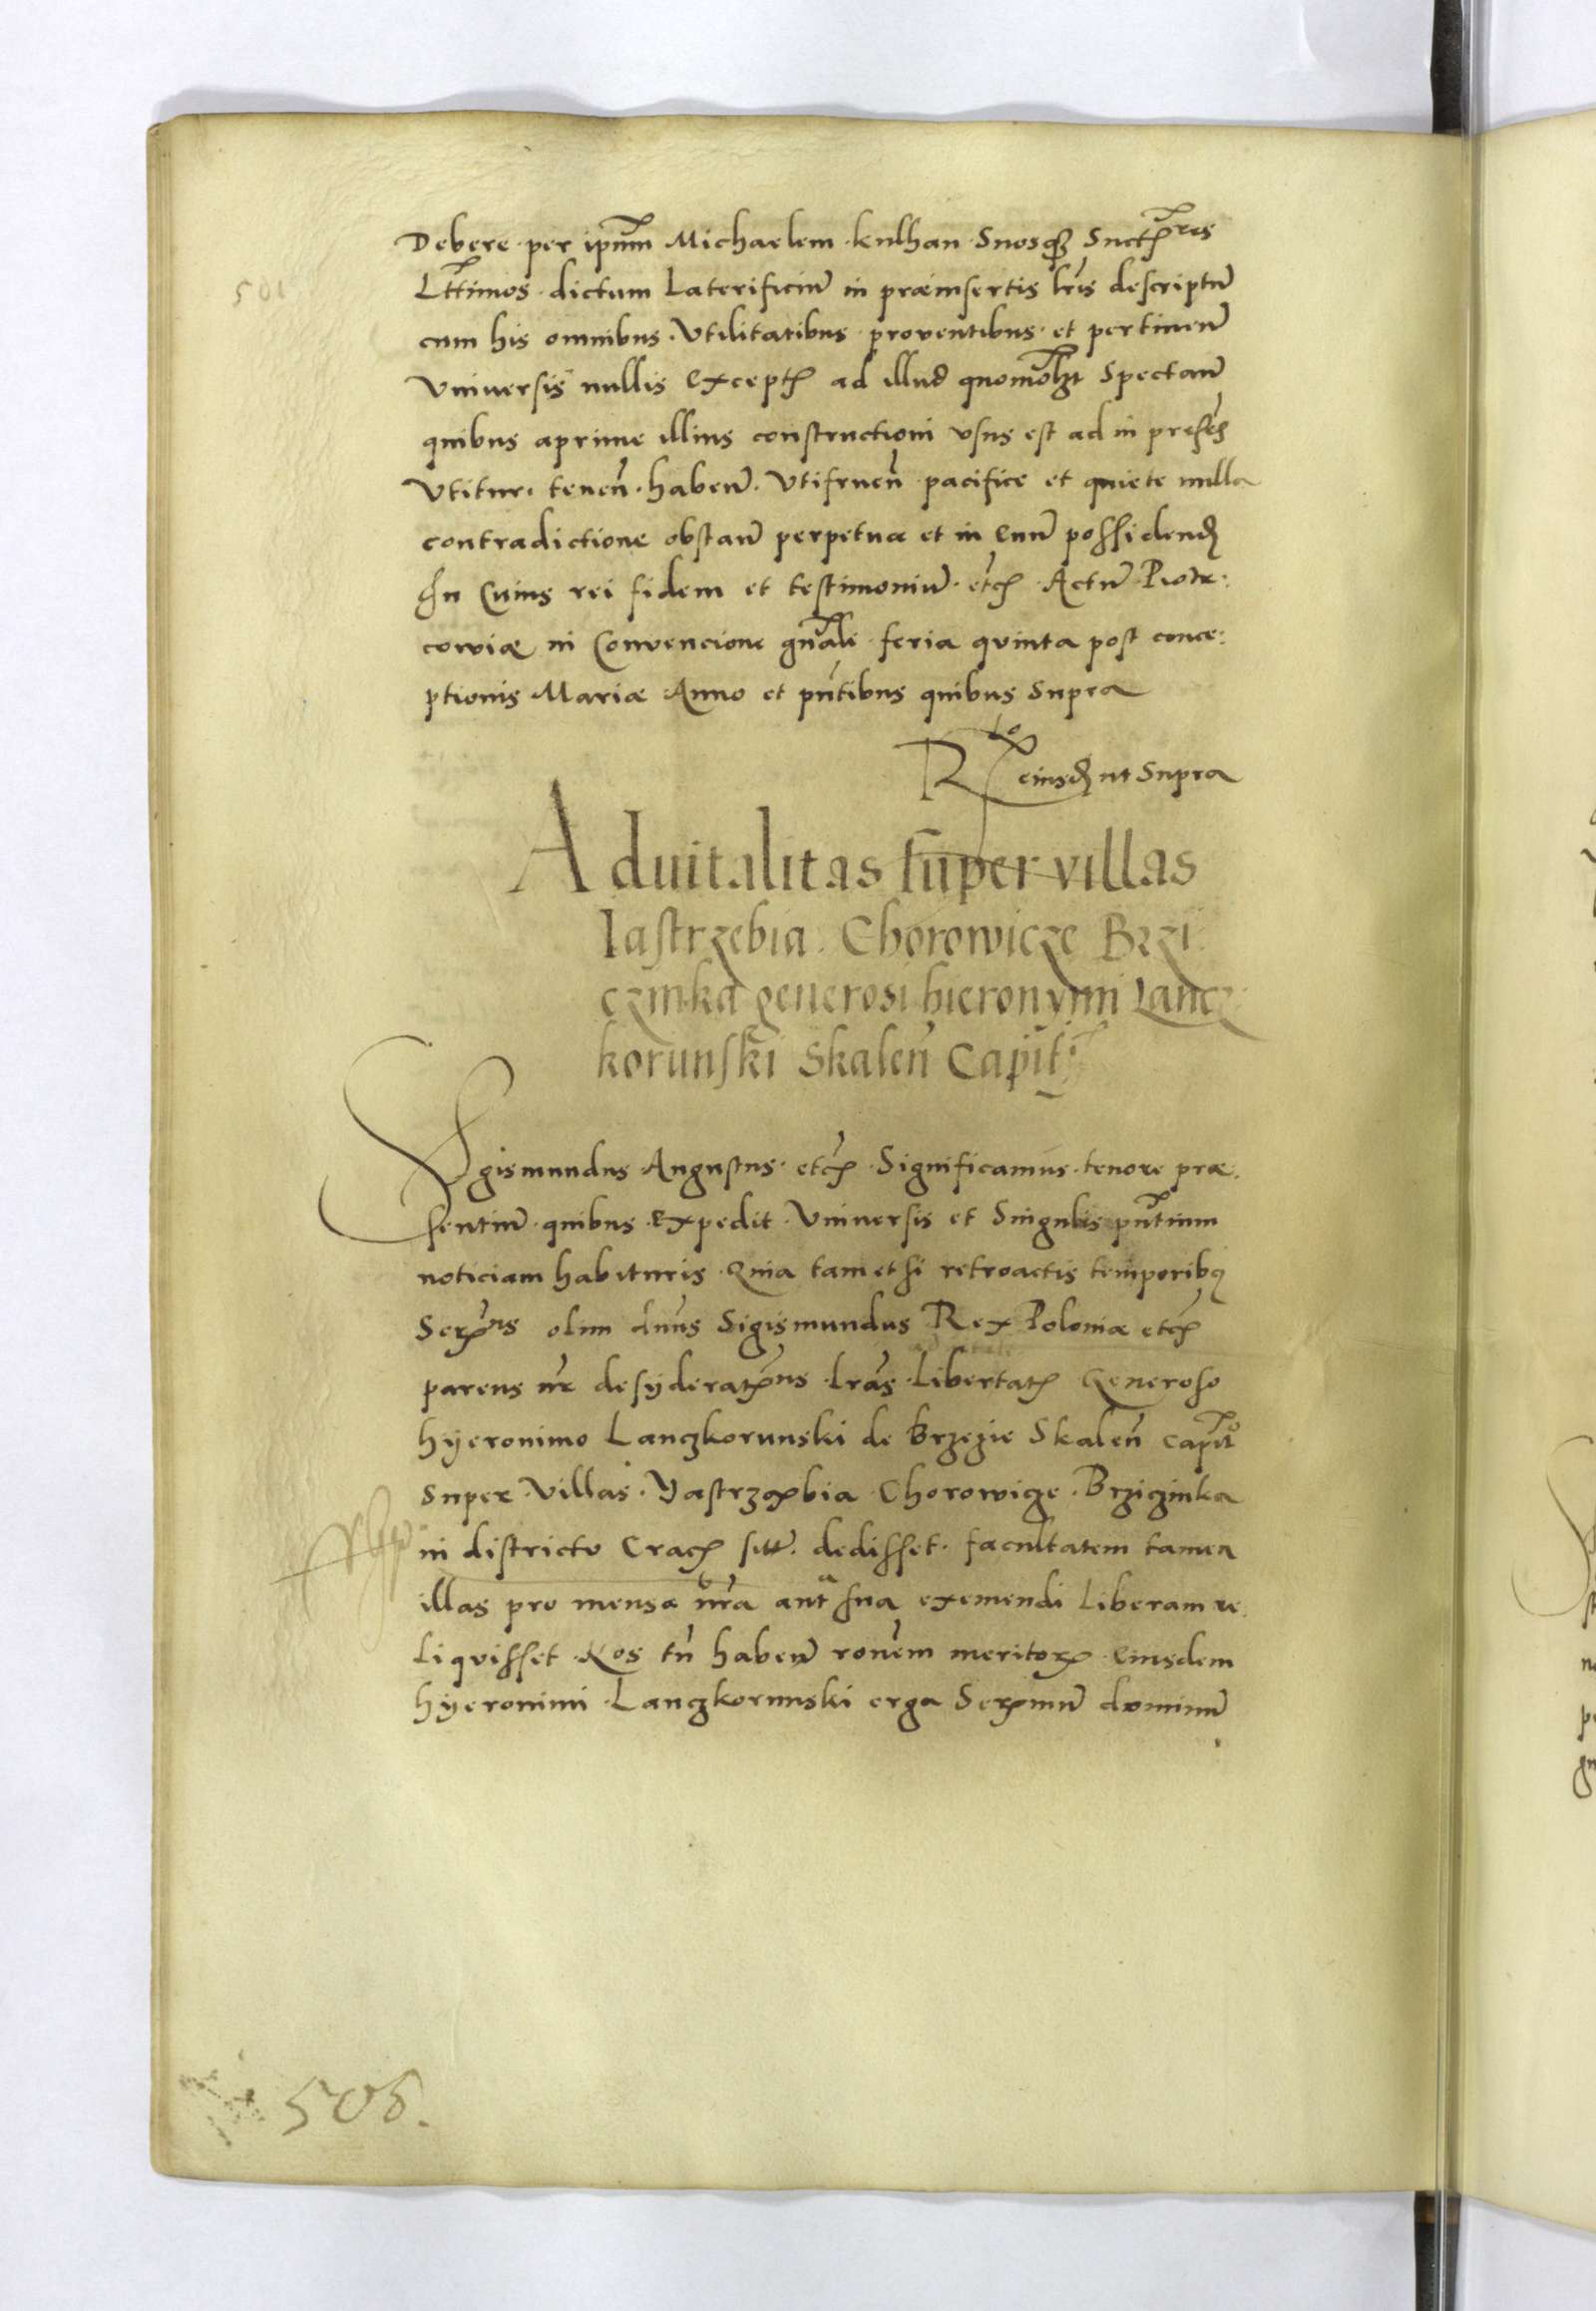 501
Debere per ipsum Michaelem Kulhan Suosqȝ Suctres
Lttimos dictum Laterificiu in præinsertis lris descriptu
cum his omnibus Vtilitatibus proventibus et pertinen
Vniuersis nullis Except ad illud quomolzt Spectan
quibus aprime illius constructioni vsus est ad in presen
Vtitur tenen haben Vtifruen pacifice et quiete nulla
contradictione obstan perpetuæ et in Euu possidend
In Cuius rei fidem et testimoniu etc Actu Piotr:
coviæ in Convencione gnali feria quinta post conce:
ptionis Mariæ Anno et pntibus quibus Supra
Rto eiusd ut Supra
Aduitalitas super villas
Iastrzebia Chorowicze Brzi
czinka generosi hieronymi Lancz
korunski Skalen Capit
Sigismundus Augustus etc Significamus tenore præ
sentiu quibus Expedit Vniuersis et Singulis pntium
noticiam habituris Quia tametsi retroactis temporibq
Serꝫmus olim dnus Sigismundus Rex Poloniæ etc
parens nr desyderatꝫmus lras Libertat Generoso
Hyeronimo Lanczkorunski de Brzezie Skalen capito
Super Villas Yastrzæbia Chorowicze Brziczinka
in districtu Crac sitt dedisset facultatem tamen
illas pro mensa nra aut sua exemendi Liberam re
liquisset Nos tn haben ronem meritor Eiusdem
Hyeronimi Lanczkorunski erga Serꝫmu dominu
505.